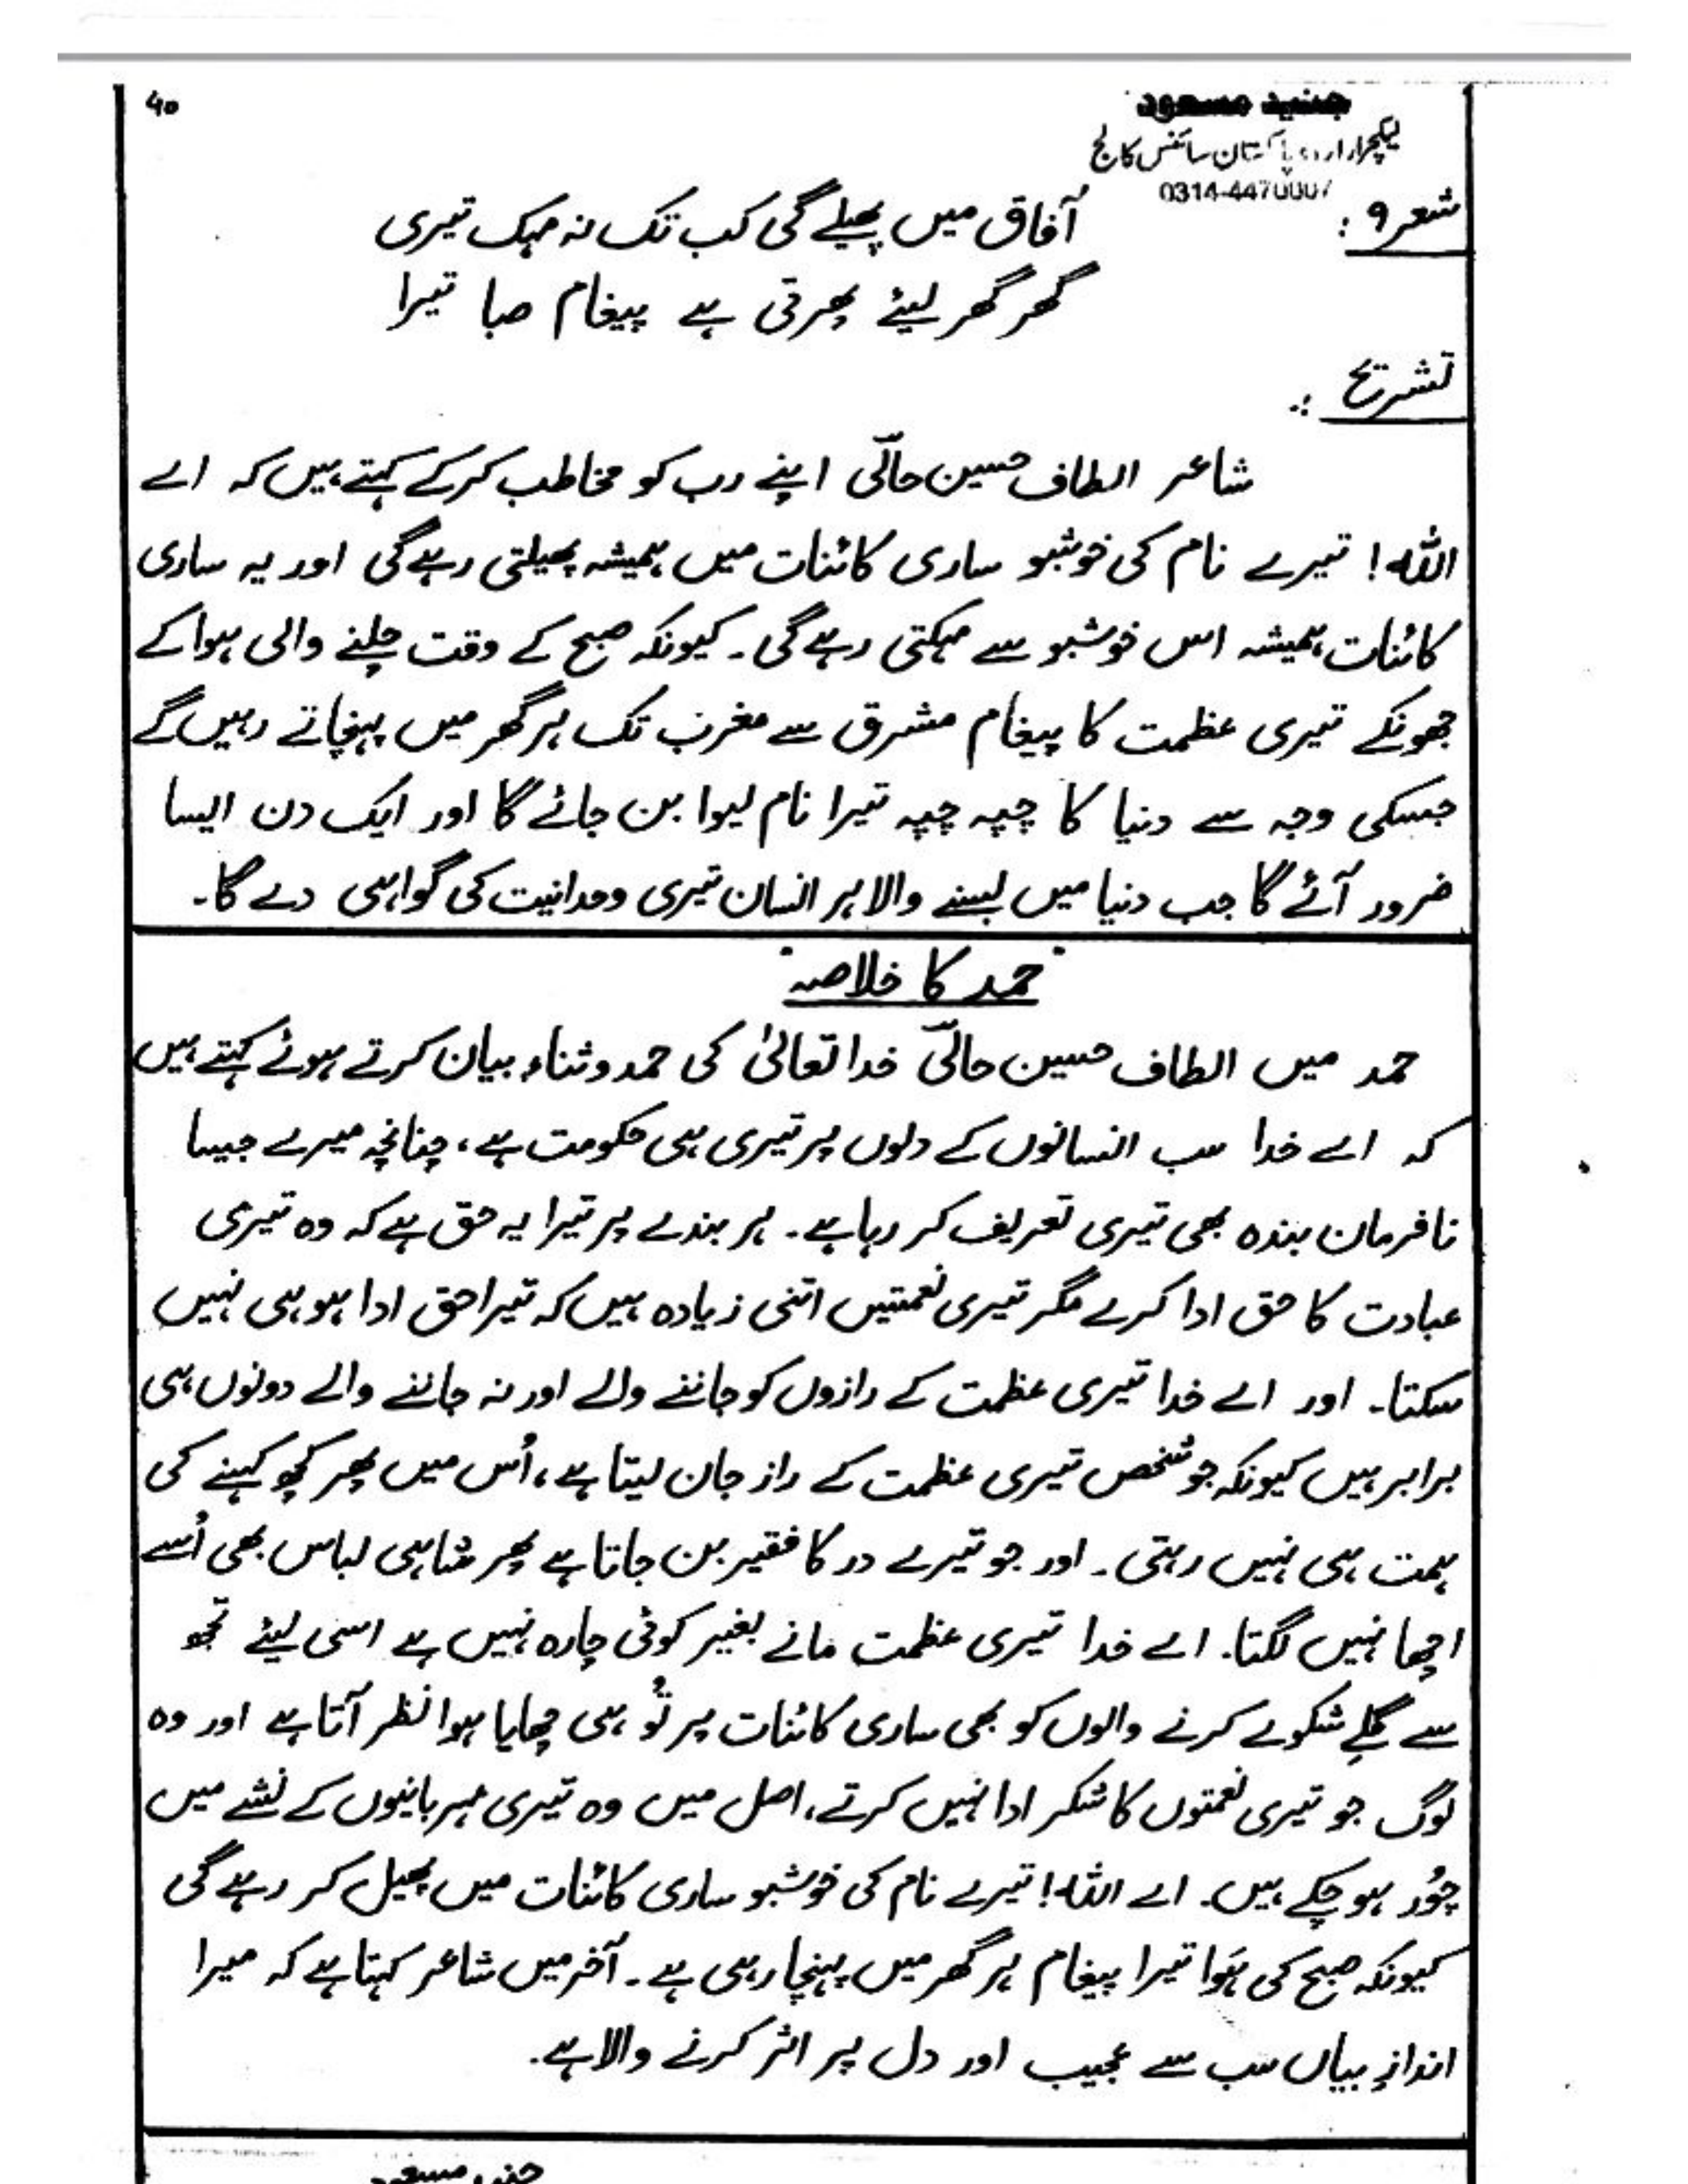 ۴۰
جنید مسعود
لیکچرار اردو پاکستان سائنس کالج
0314-4470007
شعر ۹ :
آفاق میں پھیلے گی کب تک نہ مہک تیری
گھر گھر لیئے پھرتی ہے پیغام صبا تیرا
تشریح :
شاعر الطاف حسین حالیؔ اپنے رب کو مخاطب کرکے کہتے ہیں کہ اے
اللہ! تیرے نام کی خوشبو ساری کائنات میں ہمیشہ پھیلتی رہے گی اور یہ ساری
کائنات ہمیشہ اس خوشبو سے مہکتی رہے گی۔ کیونکہ صبح کے وقت چلنے والی ہوا کے
جھونکے تیری عظمت کا پیغام مشرق سے مغرب تک ہر گھر میں پہنچاتے رہیں گے
جسکی وجہ سے دنیا کا چپہ چپہ تیرا نام لیوا بن جائے گا اور ایک دن ایسا
ضرور آئے گا جب دنیا میں بسنے والا ہر انسان تیری وحدانیت کی گواہی دے گا۔
"حمد کا خلاصہ"
حمد میں الطاف حسین حالیؔ خدا تعالیٰ کی حمد و ثناء بیان کرتے ہوئے کہتے ہیں
کہ اے خدا سب انسانوں کے دلوں پر تیری ہی حکومت ہے، چنانچہ میرے جیسا
نافرمان بندہ بھی تیری تعریف کر رہا ہے۔ ہر بندے پر تیرا یہ حق ہے کہ وہ تیری
عبادت کا حق ادا کرے مگر تیری نعمتیں اتنی زیادہ ہیں کہ تیرا حق ادا ہو ہی نہیں
سکتا۔ اور اے خدا تیری عظمت کے رازوں کو جاننے والے اور نہ جاننے والے دونوں ہی
برابر ہیں کیونکہ جو شخص تیری عظمت کے راز جان لیتا ہے، اُس میں پھر کچھ کہنے کی
ہمت ہی نہیں رہتی۔ اور جو تیرے در کا فقیر بن جاتا ہے پھر شاہی لباس بھی اُسے
اچھا نہیں لگتا۔ اے خدا تیری عظمت مانے بغیر کوئی چارہ نہیں ہے اسی لیئے تجھ
سے گلے شکوے کرنے والوں کو بھی ساری کائنات پر تُو ہی چھایا ہوا نظر آتا ہے اور وہ
لوگ جو تیری نعمتوں کا شکر ادا نہیں کرتے، اصل میں وہ تیری مہربانیوں کے نشے میں
چُور ہو چکے ہیں۔ اے اللہ! تیرے نام کی خوشبو ساری کائنات میں پھیل کر رہے گی
کیونکہ صبح کی ہَوا تیرا پیغام ہر گھر میں پہنچا رہی ہے۔ آخر میں شاعر کہتا ہے کہ میرا
اندازِ بیاں سب سے عجیب اور دل پر اثر کرنے والا ہے۔
جنید مسعود